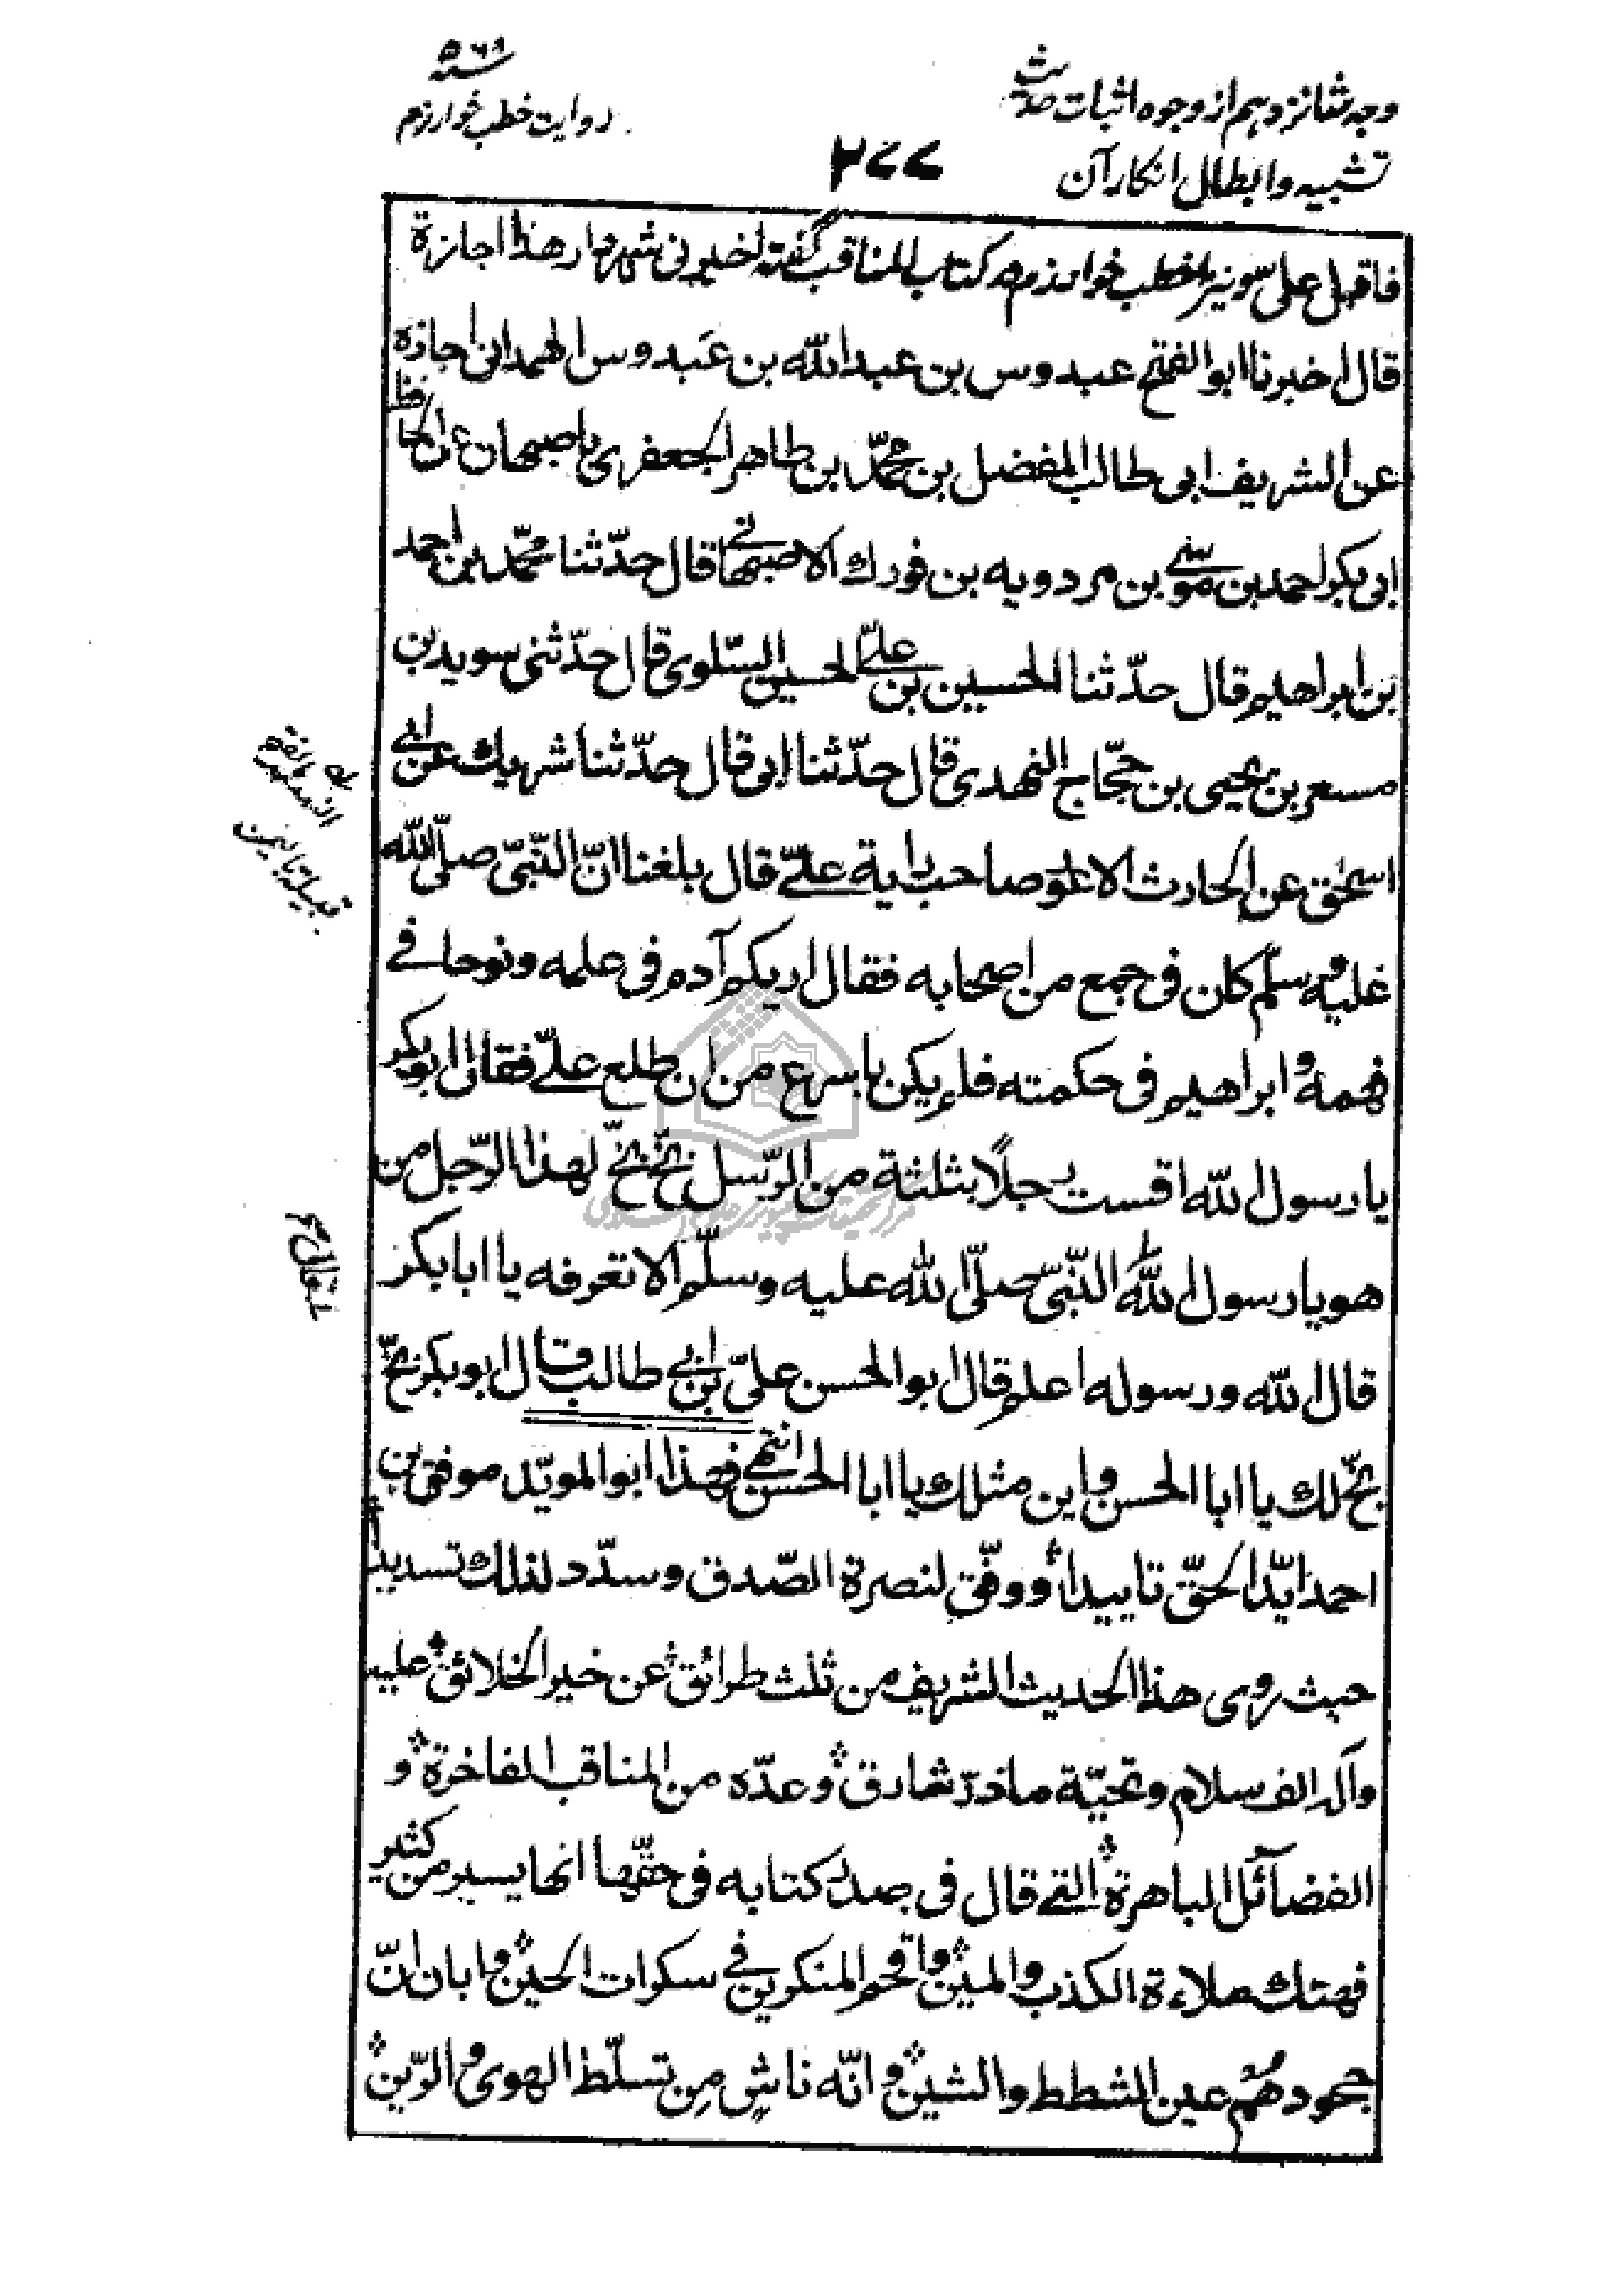 وجه شانزدهم از وجوه اثبات حدیث
تشبیه و ابطال انکار آن
۲۷۷
سنه ۵۶۸
روایت خطب خوارزم
علی سویة اخطب خوارزم در کتاب المناقب گفته اخبرنی شهردار هذا اجازة
قال اخبرنا ابو الفتح عبدوس بن عبد الله بن عبدوس الهمدانی اجازه
عن الشریف ابی طالب المفضل بن محمّد بن طاهر الجعفری باصبهان عن الحافظ
ابی بکر احمد بن موسی بن مردویه بن فورك الاصبهانی قال حدّثنا محمّد بن احمد
بن ابراهیم قال حدّثنا الحسین بن علیّ الحسین السّلوی قال حدّثنی سوید بن
مسعر بن یحیی بن حجّاج النهدی قال حدّثنا ابی قال حدّثنا شریك عن ابی
اسحٰق عن الحارث الاعور صاحب رایة علیّ قال بلغنا انّ النّبیّ صلّی اللّه
علیه و سلّم کان فی جمع من اصحابه فقال اریکم آدم فی علمه و نوحا فی
فهمه و ابراهیم فی حکمته فلم یکن باسرع من ان طلع علیّ فقال ابو بکر
یا رسول اللّه اقست رجلًا بثلثة من الرّسل بخّ بخّ لهذا الرّجل من
هو یا رسول اللّه النّبیّ صلّی اللّه علیه و سلّم الا تعرفه یا ابا بکر
قال اللّه و رسوله اعلم قال ابو الحسن علیّ بن ابی طالب قال ابو بکر بخّ
بخّ لك یا ابا الحسن و این مثلك یا ابا الحسن انتهی فهذا ابو المویّد موفق بن
احمد ایّد الحقّ تاییدا و وفّق لنصرة الصّدق و سدّد لذلك تسدیدا
حیث روی هذا الحدیث الشریف من ثلث طرائق عن خیر الخلائق علیه
و آله الف سلام و تحیّة ما ذرّ شارق و عدّه من المناقب الفاخرة و
الفضآئل الباهرة التی قال فی صدر کتابه فی حقّها انها یسیر من کثیر
فهتك ملاءة الکذب و المین و اقحم المنکرین فی سکرات الحین و ابان انّ
جحودهم عین الشطط و الشین و انّه ناشٍ مِن تسلّط الهوی و الرّین
قبیلة بالیمن
فقال